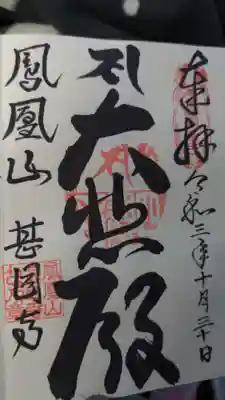 奉拝 令和三年十月二十日
大悲殿
鳳凰山 甚目寺